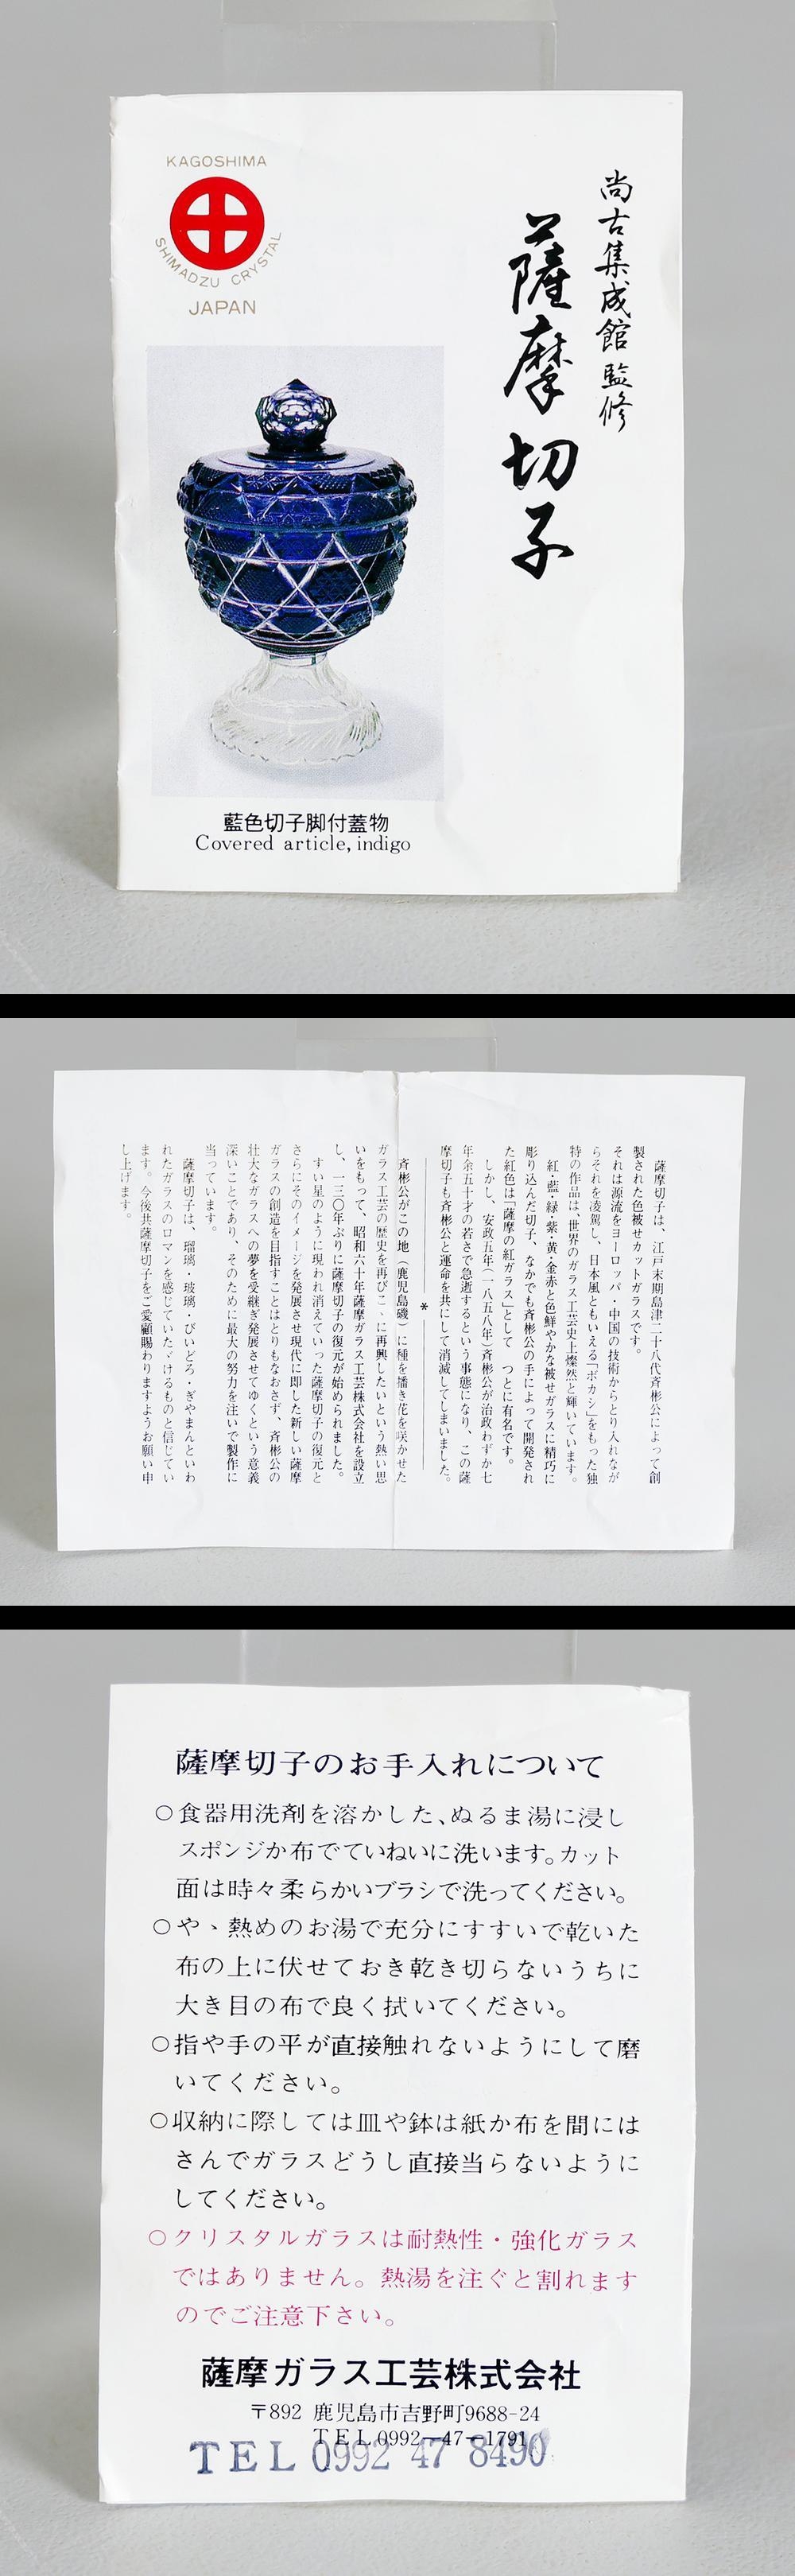 KAGOSHIMA
SHIMADZU CRYSTAL
JAPAN
尚古集成館 監修
薩摩切子
藍色切子脚付蓋物
Covered article, indigo
薩摩切子は、江戸末期島津二十八代斉彬公によって創
製された色被せカットガラスです。
それは源流をヨーロッパ・中国の技術からとり入れなが
らそれを凌駕し、日本風ともいえる「ボカシ」をもった独
特の作品は、世界のガラス工芸史上燦然と輝いています。
紅・藍・緑・紫・黄・金赤と色鮮やかな被せガラスに精巧に
彫り込んだ切子、なかでも斉彬公の手によって開発され
た紅色は「薩摩の紅ガラス」として つとに有名です。
しかし、安政五年(一八五八年)斉彬公が治政わずか七
年余五十才の若さで急逝するという事態になり、この薩
摩切子も斉彬公と運命を共にして消滅してしまいました。
*
斉彬公がこの地(鹿児島磯)に種を播き花を咲かせた
ガラス工芸の歴史を再びこゝに再興したいという熱い思
いをもって、昭和六十年薩摩ガラス工芸株式会社を設立
し、一三〇年ぶりに薩摩切子の復元が始められました。
すい星のように現われ消えていった薩摩切子の復元と
さらにそのイメージを発展させ現代に即した新しい薩摩
ガラスの創造を目指すことはとりもなおさず、斉彬公の
壮大なガラスへの夢を受継ぎ発展させてゆくという意義
深いことであり、そのために最大の努力を注いで製作に
当っています。
薩摩切子は、瑠璃・玻璃・びいどろ・ぎやまんといわ
れたガラスのロマンを感じていたゞけるものと信じてい
ます。今後共薩摩切子をご愛顧賜わりますようお願い申
し上げます。
薩摩切子のお手入れについて
○食器用洗剤を溶かした、ぬるま湯に浸し
スポンジか布でていねいに洗います。カット
面は時々柔らかいブラシで洗ってください。
○やゝ熱めのお湯で充分にすすいで乾いた
布の上に伏せておき乾き切らないうちに
大き目の布で良く拭いてください。
○指や手の平が直接触れないようにして磨
いてください。
○収納に際しては皿や鉢は紙か布を間には
さんでガラスどうし直接当らないように
してください。
○クリスタルガラスは耐熱性・強化ガラス
ではありません。熱湯を注ぐと割れます
のでご注意下さい。
薩摩ガラス工芸株式会社
〒892 鹿児島市吉野町9688-24
TEL 0992-47-1791
TEL 0992 47 8490